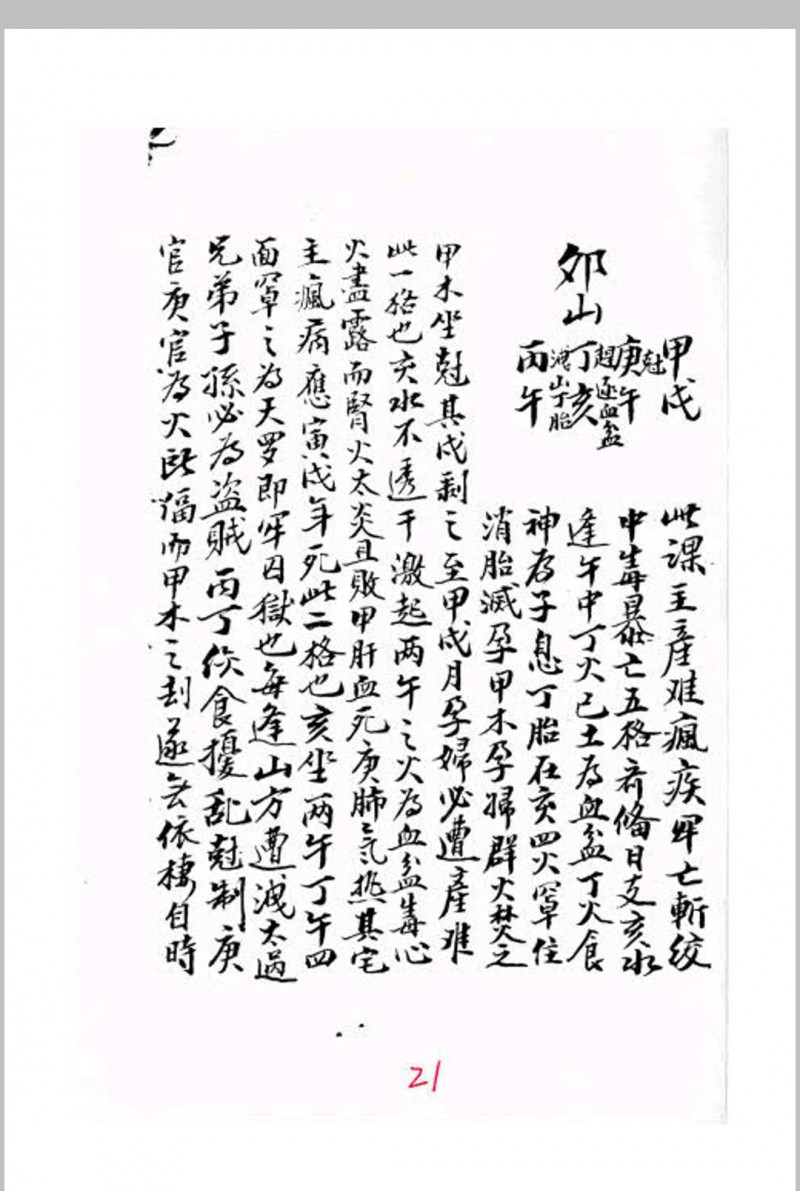 卯山
甲戌
尅
庚午
趕逐血盆
丁亥
洩山丁胎
丙午
此课主産难瘋疾牢亡斬绞
中毒暴亡五格齐備日支亥水
逢午中丁火已土為血盆丁火食
神為子息丁胎在亥四火罩住
消胎滅孕甲木孕婦群火焚之
甲木坐尅其戌剥之至甲戌月孕婦必遭産难
此一格也亥水不透干激起两午之火為血盆毒心
火盡露而腎火太炎且敗甲肝血死庚肺氣熱其宅
主瘋病應寅戌年死此二格也亥坐两午丁午四
面罩之為天罗即牢囚獄也每逢山方遭洩太過
兄弟子孫必為盗贼丙丁飲食擾乱尅制庚
官庚官為火所煏而甲木之刮遂无依棲自時
21